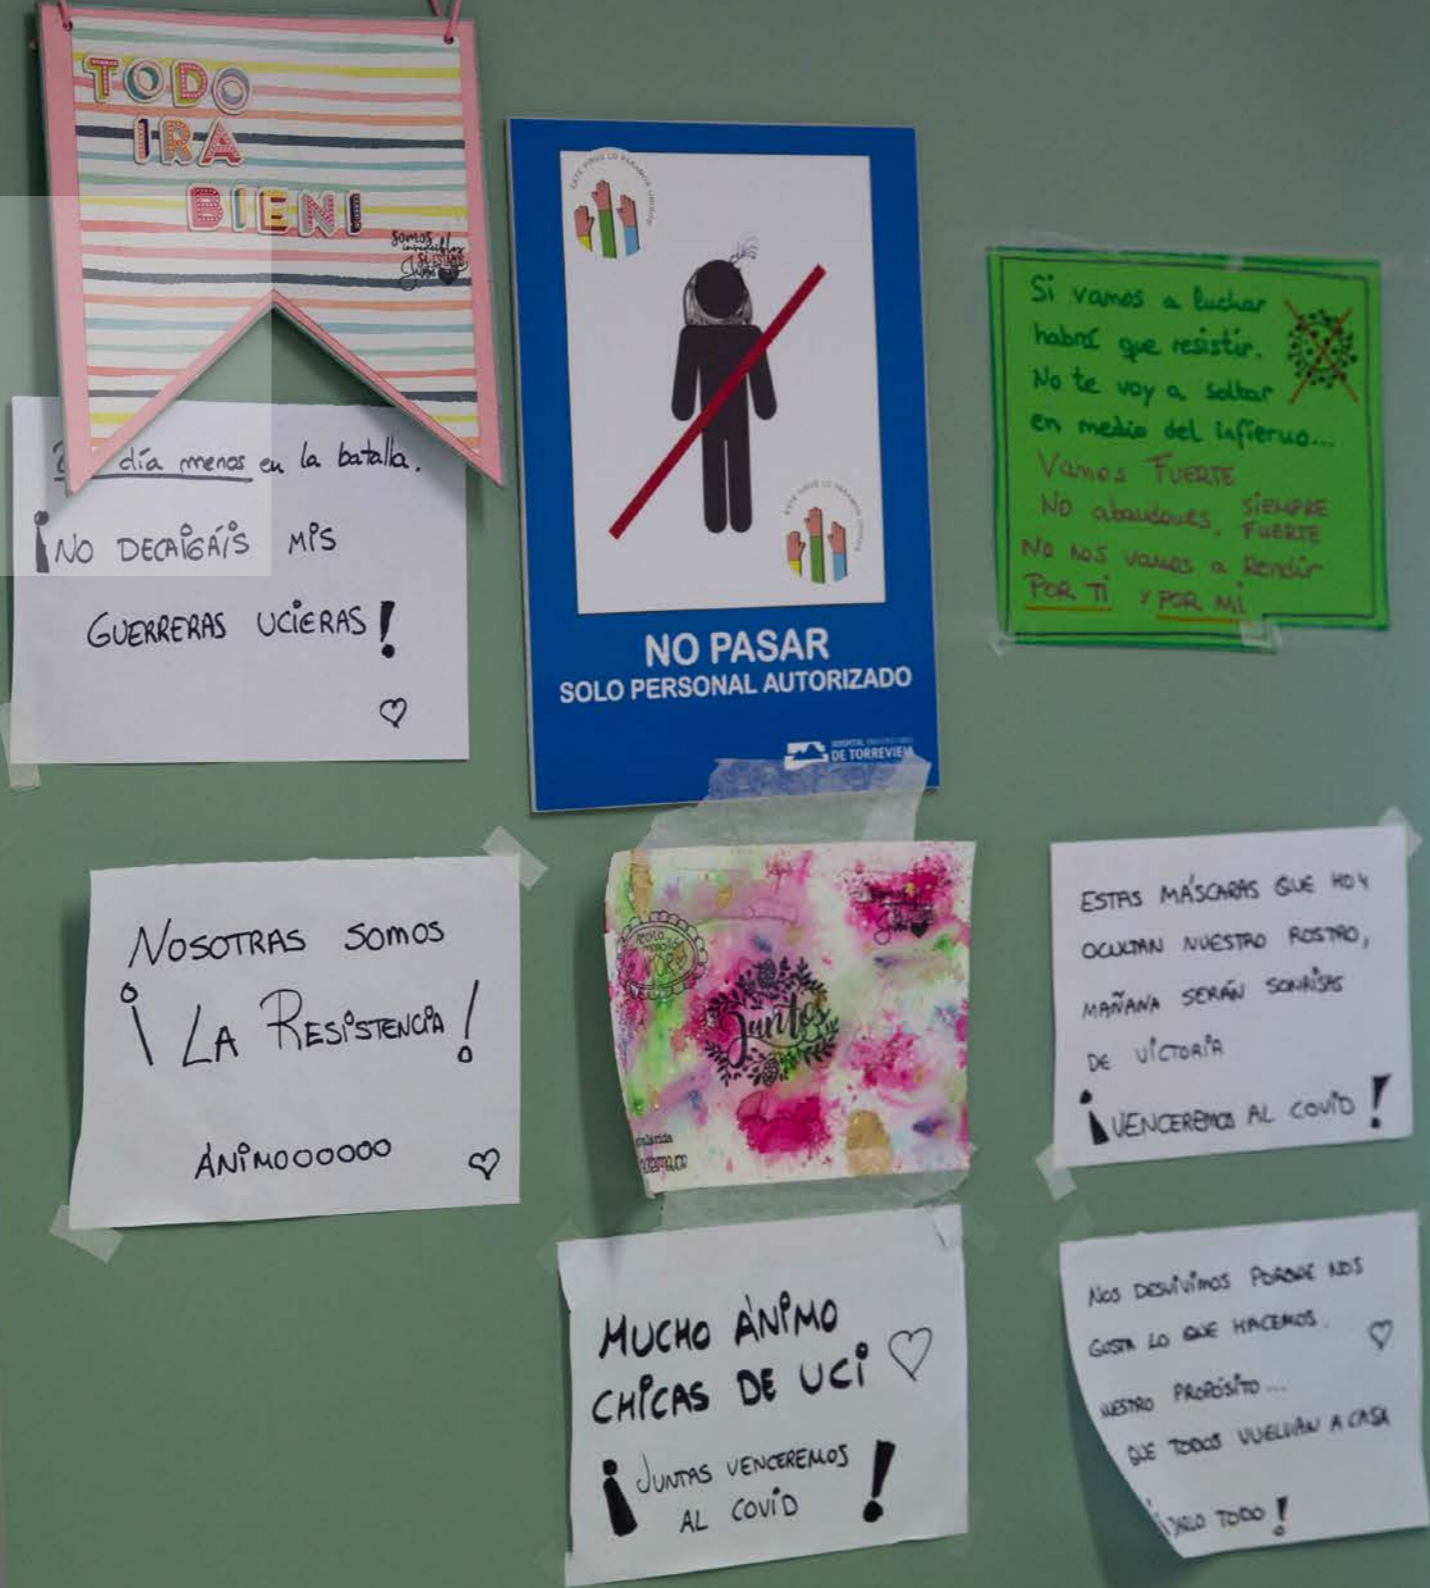 TODO
IRA
BIEN!
SOMOS
invencibles
SI ESTAMOS
Juntos
día menos en la batalla.
¡NO DECAIGÁIS MIS
GUERRERAS UCIERAS!
ESTE VIRUS LO PARAMOS UNIDOS
ESTE VIRUS LO PARAMOS UNIDOS
NO PASAR
SOLO PERSONAL AUTORIZADO
HOSPITAL UNIVERSITARIO
DE TORREVIEJA
Si vamos a luchar
habrá que resistir.
No te voy a soltar
en medio del infierno...
Vamos FUERTE
No abandones, SIEMPRE
FUERTE
No nos vamos a Rendir
POR TI Y POR MI
NOSOTRAS SOMOS
¡LA RESISTENCIA!
ÁNIMOOOOOO
Juntos
Juntos
ESTAS MÁSCARAS QUE HOY
OCULTAN NUESTRO ROSTRO,
MAÑANA SERÁN SONRISAS
DE VICTORIA
¡VENCEREMOS AL COVID!
MUCHO ÁNIMO
CHICAS DE UCI
¡JUNTAS VENCEREMOS
AL COVID!
NOS DESVIVIMOS PORQUE NOS
GUSTA LO QUE HACEMOS.
NUESTRO PROPÓSITO...
QUE TODOS VUELVAN A CASA
¡DARLO TODO!